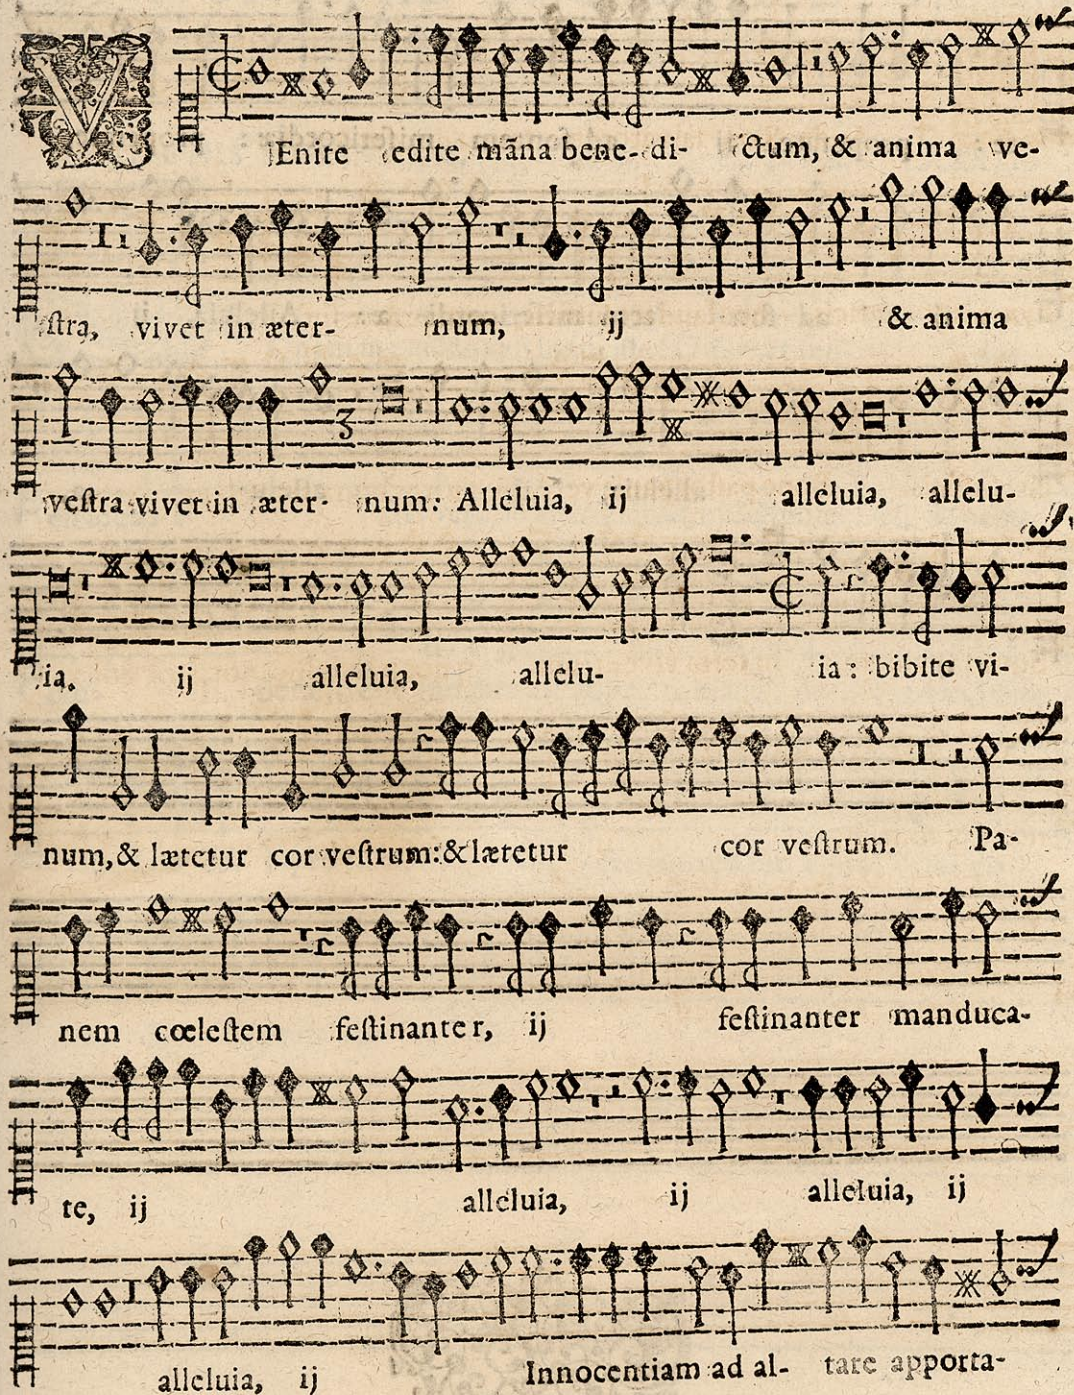 VEnite edite mãna bene-di- ctum, & anima ve-
ſtra, vivet in æter- num, ij & anima
veſtra vivet in æter- num: Alleluia, ij alleluia, allelu-
ia. ij alleluia, allelu- ia: bibite vi-
num, & lætetur cor veſtrum: & lætetur cor veſtrum. Pa-
nem cœleſtem feſtinanter, ij feſtinanter manduca-
te, ij alleluia, ij alleluia, ij
alleluia, ij Innocentiam ad al- tare apporta-